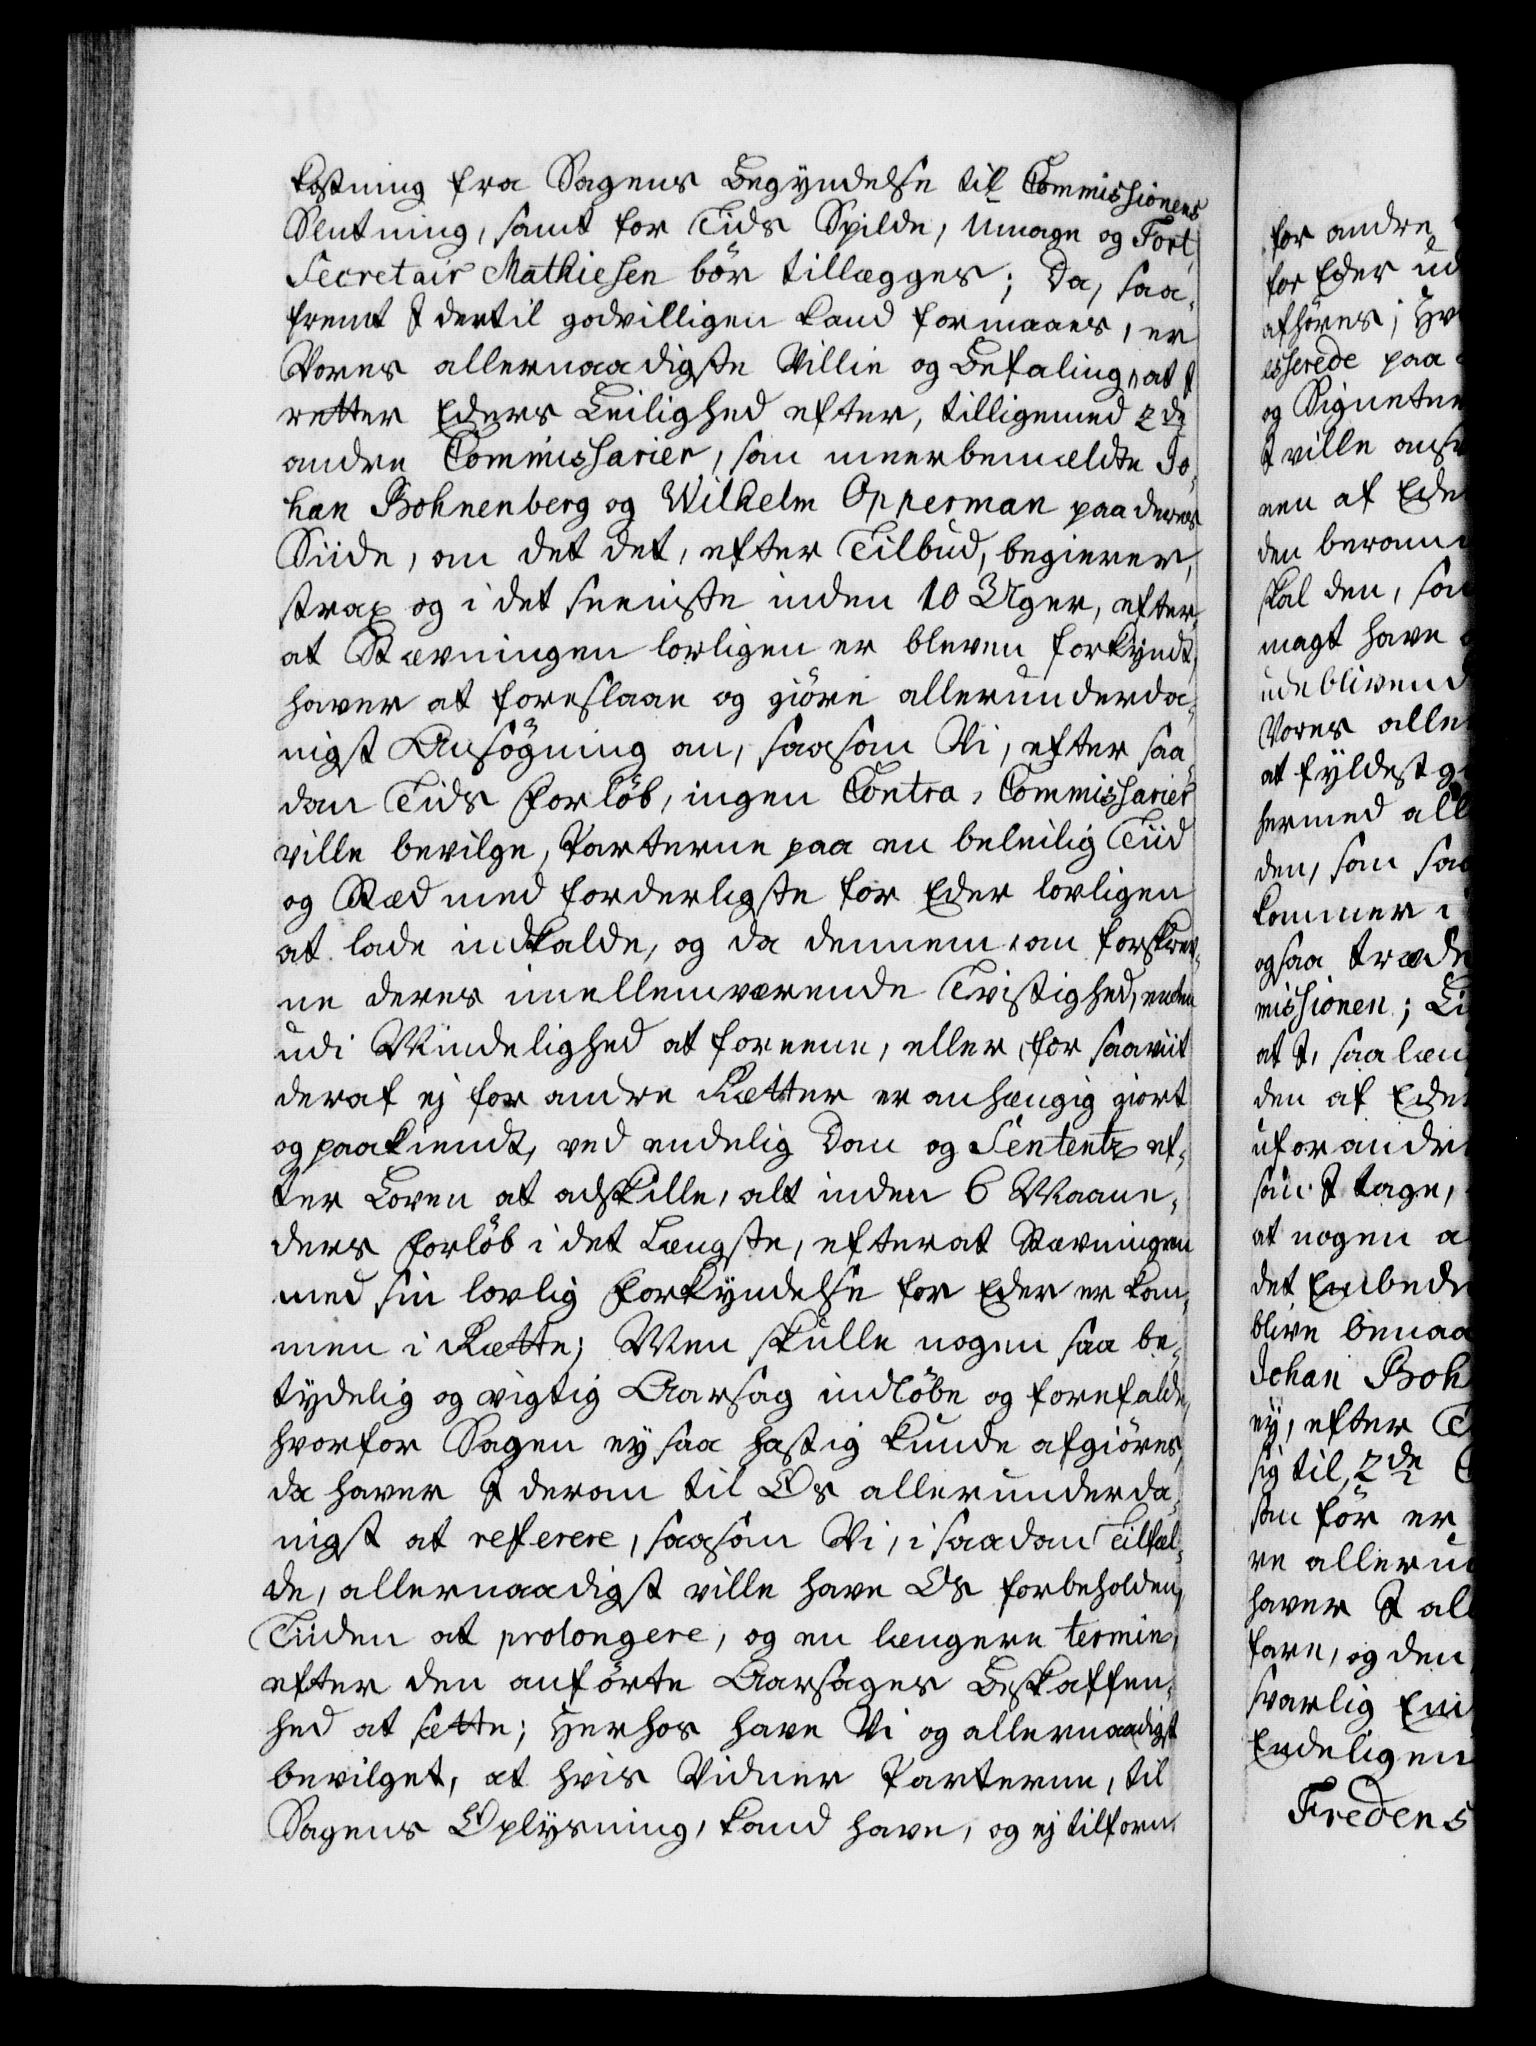 kostning fra Sagens Begyndelse til Commissionens
Slutning, samt for Tids Spilde, Umage og Tort,
Secretair Mathiesen bör tillægges; Da, saa¬
fremt I dertil godvilligen kand formaaes, er
Vores allernaadigste Villie og Befaling, at I
retter Eders Leilighed efter, tilligemed 2de
andre Commissarier, som meerbemeldte Jo¬
han Bohnenberg og Wilhelm Opperman paa deres
Siide, om det det, efter Tilbud, begierer,
strax og i det seeniste inden 10 Uger, efter¬
at Stævningen lovligen er bleven forkyndt,
haver at foreslaae og giöre allerunderda¬
nigst Ansögning om, saasom Vi, efter saa¬
dan Tids Forlöb, ingen Contra-Commissarier
ville bevilge, Parterne paa en beleilig Tiid
og Stæd med forderligste for Eder lovligen
at lade indkalde, og da dennem om forskrev¬
ne deres imellemværende Tvistighed, enten
udi Mindelighed at foreene, eller, for saaviit
deraf ej for andre Retter er anhængig giort
og paakiendt, ved endelig Dom og Sententz ef¬
ter Loven at adskille, alt inden 6 Maane¬
ders Forlöb i det Længste, efterat Stævningen
med sin lovlig Forkyndelse for Eder er kom¬
men i Rette; Men skulle nogen saa be¬
tydelig og vigtig Aarsag indlöbe og forefalde,
hvorfor Sagen ey saa hastig kunde afgiöres,
da haver I derom til Os allerunderda¬
nigst at referere, saasom Vi, i saadan Tilfæl¬
de, allernaadigst ville have Os forbeholden,
Tiiden at prolongere, og en længere termin,
efter den anförte Aarsages Beskaffen¬
hed at sette; Herhos have Vi og allernaadigst
bevilget, at hvis Vidner Parterne, til
Sagens Oplysning, kand have, og ej tilforn
for andre
for Eder ud
afhöres; Hv
esserede paa
og Signeter
I ville ans
een af Ede
den beram
skal den, so
magt have
udeblivend
Vores alle
at fyldestg
hermed all
den, som saa
kommer i
ogsaa træde
missionen; Li
at I, saa læn
den af Ede
uforandr
som I tage,
at nogen a
det Embede
blive benaa
Johan Boh
ey, efter T
sig til, 2de C
som för er
re alleru
haver I al
fare, og den
svarlig Em
Endeligen
Fredens